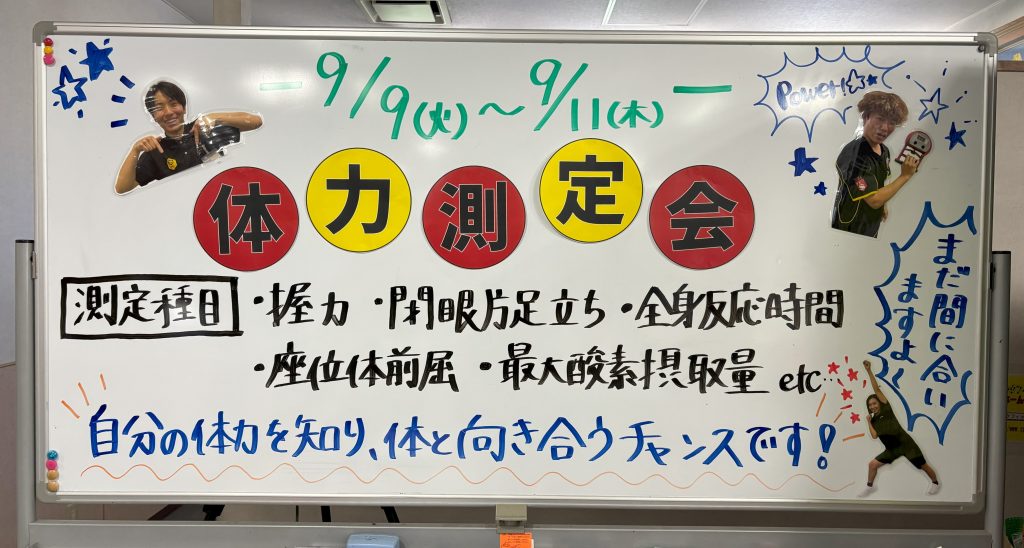 9/9(火)～9/11(木)
Power!!
体力測定会
まだ間に合い
ますよ
測定種目 ・握力 ・閉眼片足立ち ・全身反応時間
・座位体前屈 ・最大酸素摂取量 etc…
自分の体力を知り、体と向き合うチャンスです！